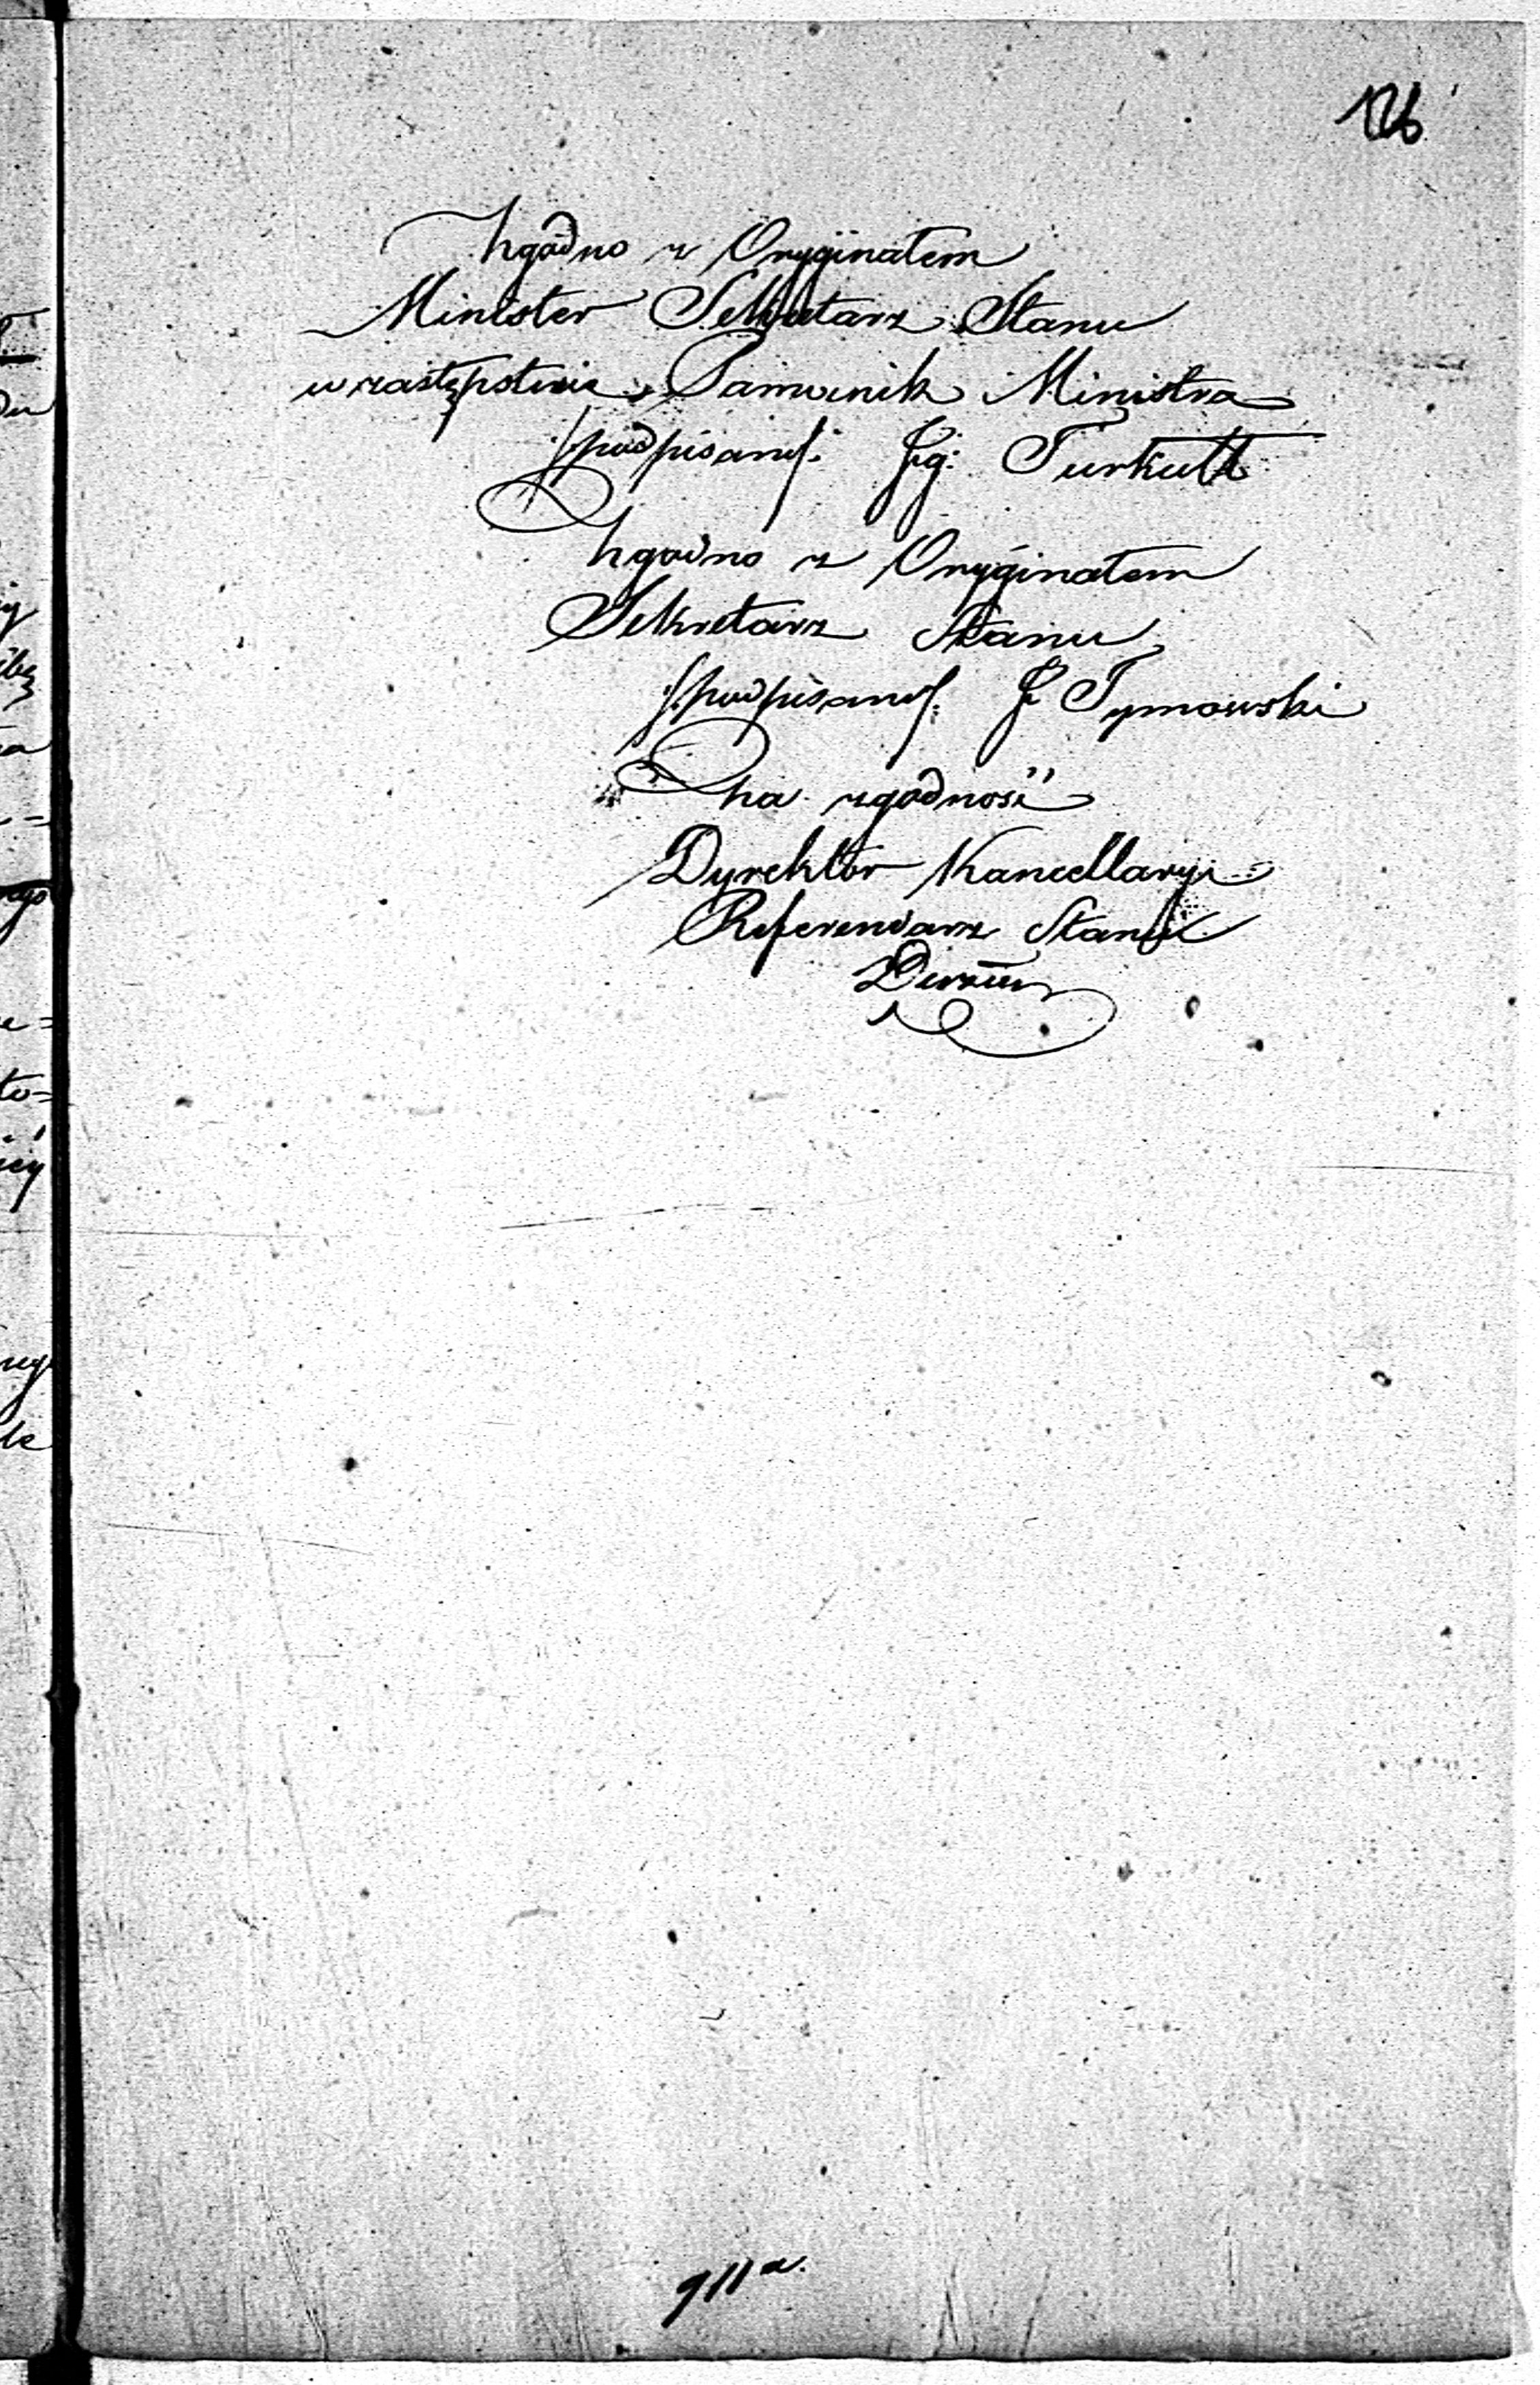 126
Zgodno z Oryginałem
Minister Sekretarz Stanu
w zastępstwie, Pomocnik Ministra
/:podpisano/: Ig: Turkułł
Zgodno z Oryginałem
Sekretarz Stanu
/:podpisano/: J Tymowski
Za zgodność
Dyrektor Kancellaryi
Referendarz Stanu
911a.